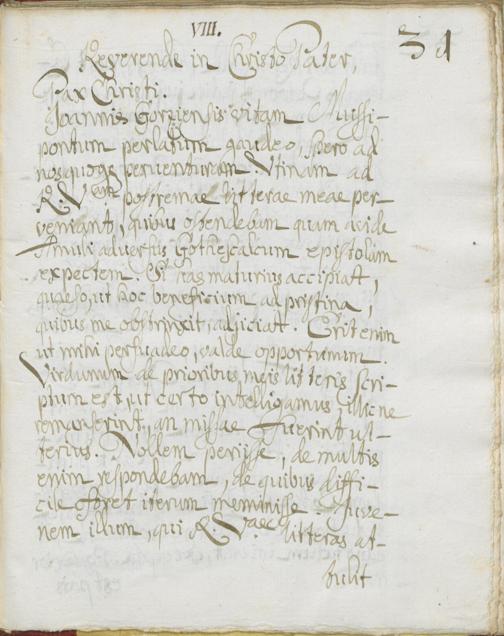 VIII.
31
Reverende in Christo Pater,
Pax Christi.
Joannis Gorziensis vitam Mussi-
pontum perlatum gaudeo, spero ad
nos quoque perventuram. Vtinam ad
R. V.am postremae litterae meae per-
veniant, quibus ostendebam quam avide
Amuli adversus Gothescalcum epistolam
expectem. Si has maturius accipiat,
quaeso, ut hoc beneficium ad pristina,
quibus me obstrinxit, adjiciat. Erit enim
ut mihi persuadeo, valde opportunum.
Virdunum de prioribus meis litteris scri-
ptum est, ut certo intelligamus, illic ne
remanserint, an missae fuerint ul-
terius. Nollem periisse, de multis
enim respondebam, de quibus diffi-
cile foret iterum meminisse. Juve-
nem illum, qui R. V.ae litteras at-
tulit